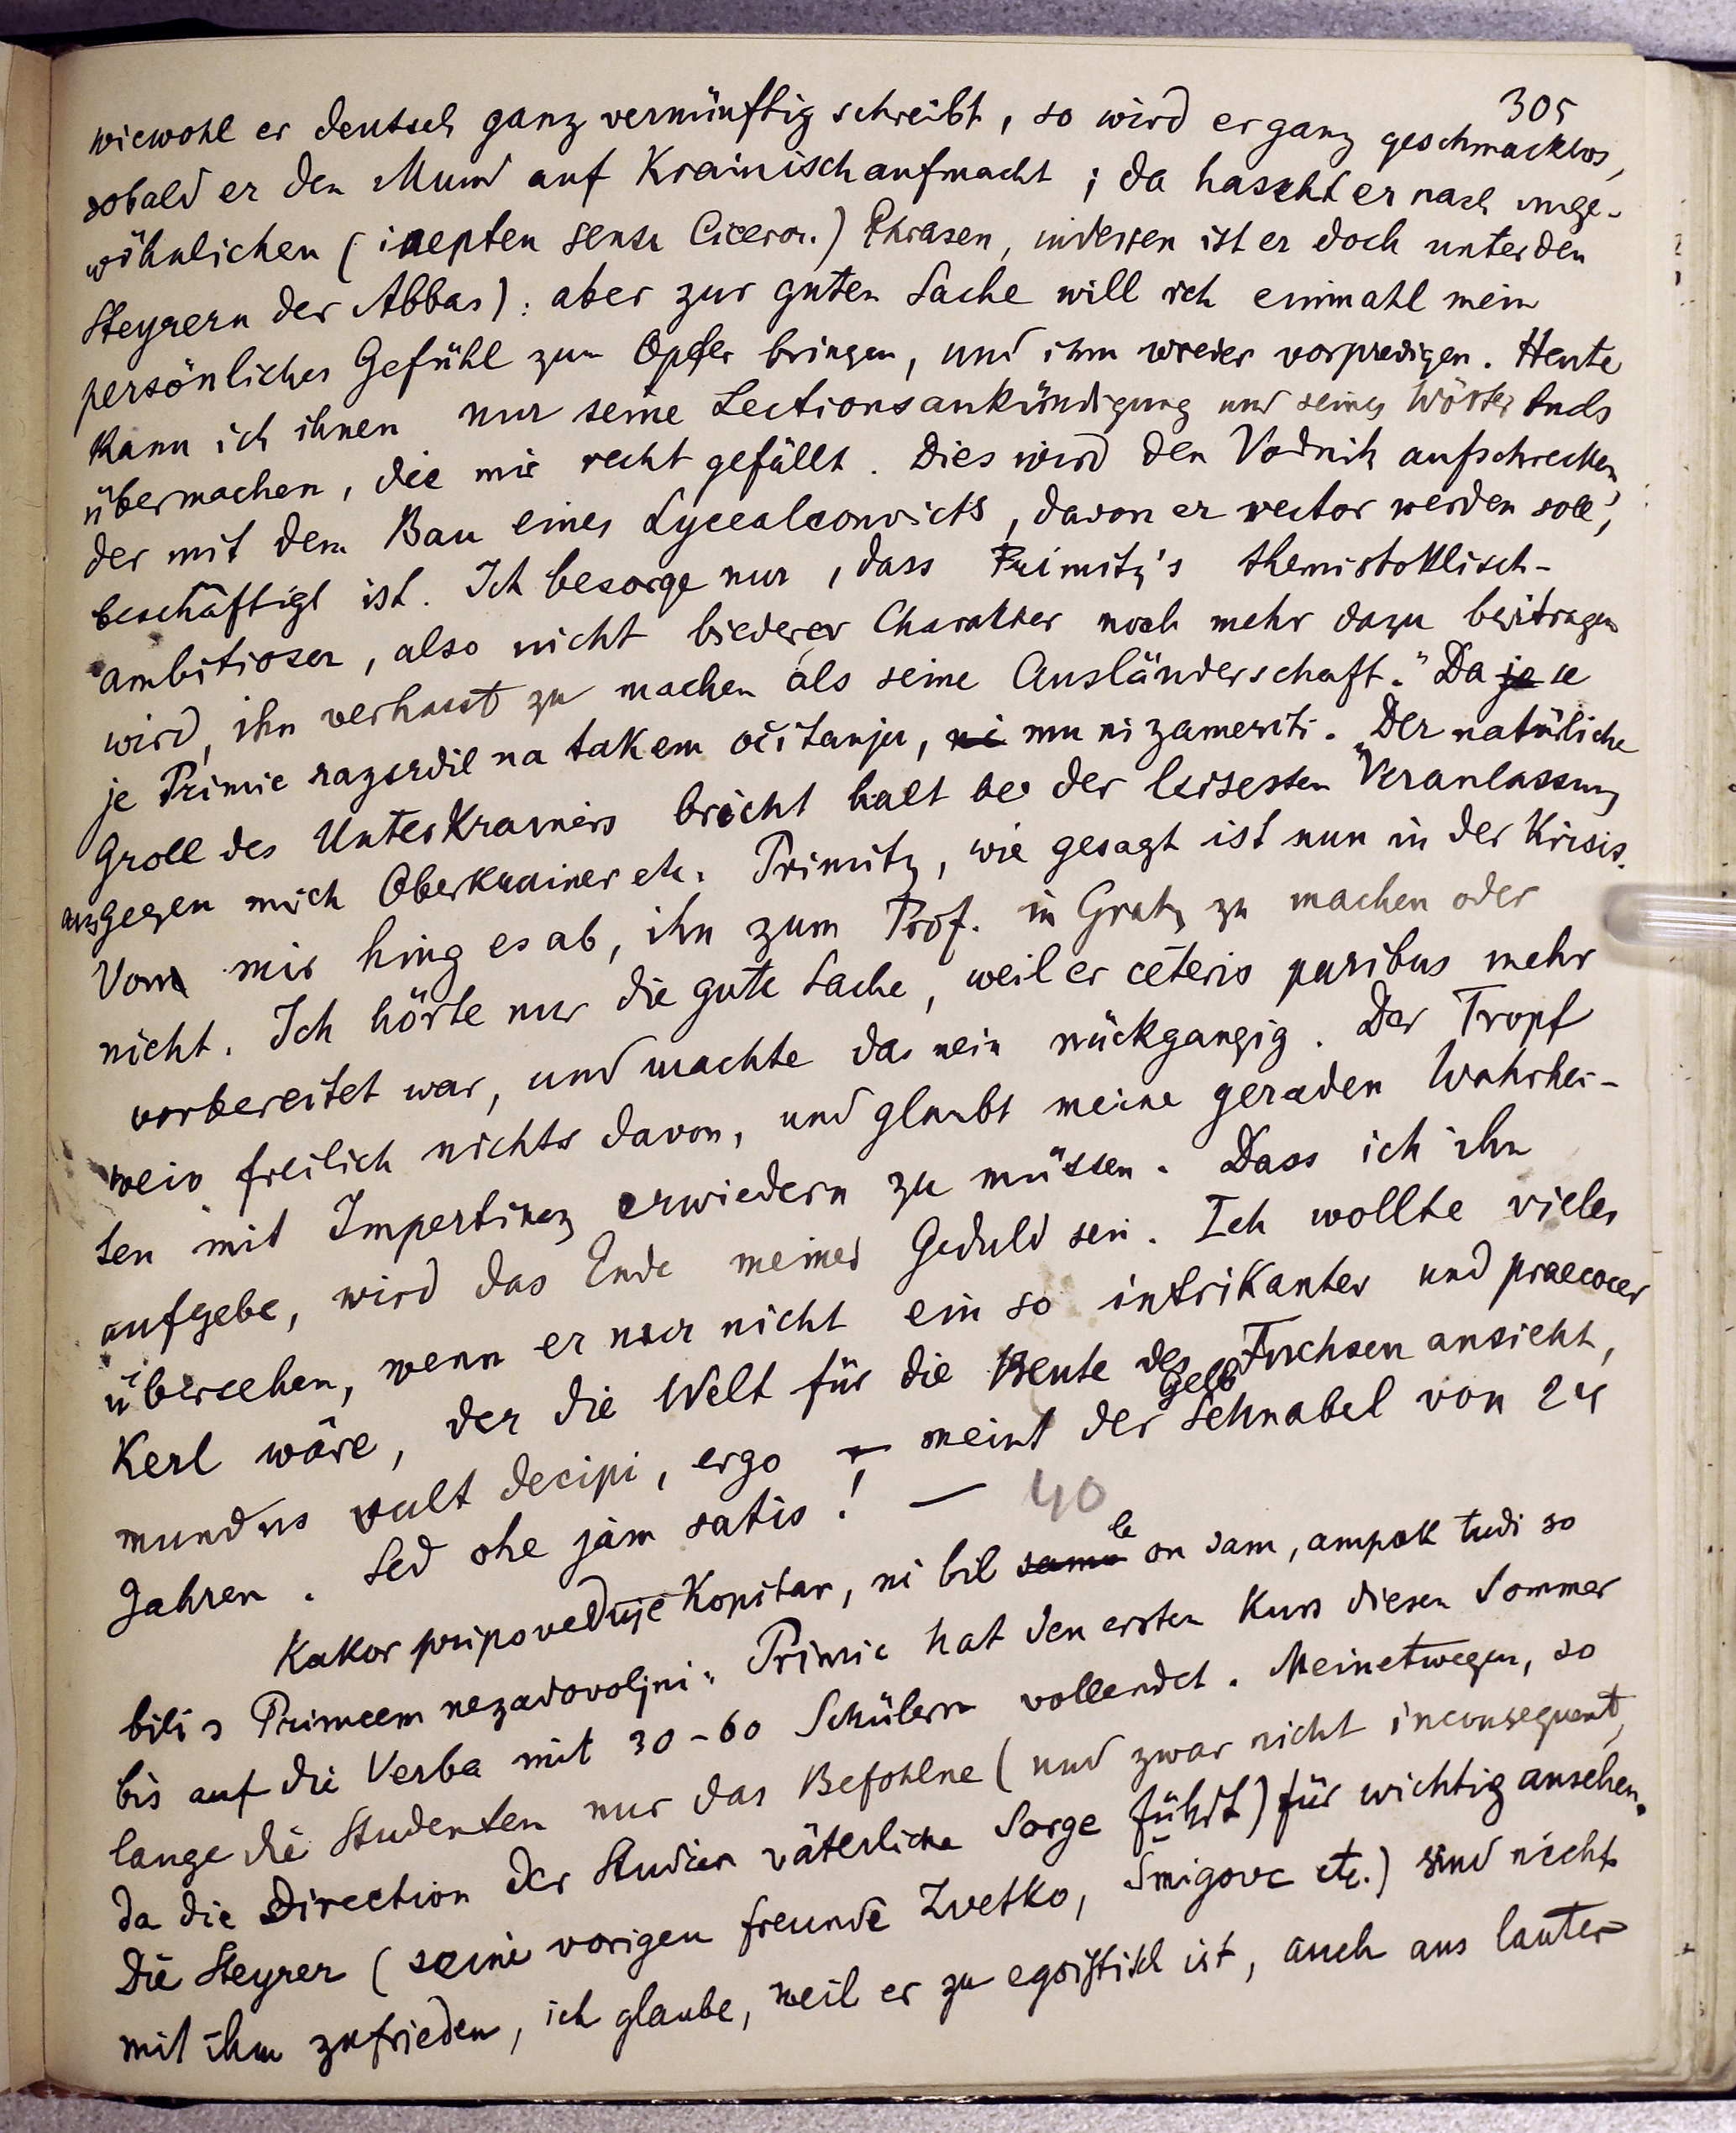 305
wiewohl er deutsch ganz vernünftig schreibt, so wird er ganz geschmacklos,
sobald er den Mund auf Krainisch aufmacht; da hascht er nach unge-
wöhnlichen (inepten sensu Ciceron.) Phrasen, indessen ist er doch unter den
Steyrern der Abbas): aber zur guten Sache will ich einmahl mein
persönliches Gefühl zum Opfer bringen, und ihm wieder vorpredigen. Heute
kann ich ihnen nur seine Lectionsankündigung und seines Wörterbuchs
übermachen, die mir recht gefällt. Dies wird den Vodnik aufschrecken,
der mit dem Bau eines Lycealconvicts, davon er rector werden soll,
beschäftigt ist. Ich besorge nur, dass Primitz's themistoklisch-
ambitioser, also nicht biederer Charakter noch mehr dazu beitragen
wird, ihn verhasst zu machen als seine Ausländerschaft." Da je se
je Primic razsrdil na takem očitanju, ni mu ni zameriti. "Der natürliche
Groll des Unterkrainers bricht halt bei der leisesten Veranlassung
aus gegen mich Oberkrainer etc. Primitz, wie gesagt ist nun in der Krisis.
Von mir hing es ab, ihn zum Prof. in Gratz zu machen oder
nicht. Ich hörte nur die gute Sache, weil er ceteris paribus mehr
vorbereitet war, und machte das nein rückgangig. Der Tropf
weis freilich nichts davon, und glaubt meine geraden Wahrhei-
ten mit Impertinenz erwiedern zu müssen. Dass ich ihn
aufgebe, wird das Ende meiner Geduld sein. Ich wollte vieles
übersehen, wenn er nur nicht ein so intrikanter und praecocer
Kerl wäre, der die Welt für die Beute des Fuchsen ansieht,
mundus vult decipi, ergo — meint der Gelb Schnabel von 24
Jahren. Sed ohe jam satis! — 40
Kakor pripoveduje Kopitar, ni bil samo le on sam, ampak tudi so
bili s Primcem nezadovoljni: Primic hat den ersten Kurs diesen Sommer
bis auf die Verba mit 30-60 Schülern vollendet. Meinetwegen, so
lange die Studenten nur das Befohlne (und zwar nicht inconsequent,
da die Direction der Studien väterliche Sorge führt) für wichtig ansehen.
Die Steyrer (seine vorigen freunde Zvetko, Šmigovc etc.) sind nicht
mit ihm zufrieden, ich glaube, weil er zu egoistisch ist, auch aus lauter